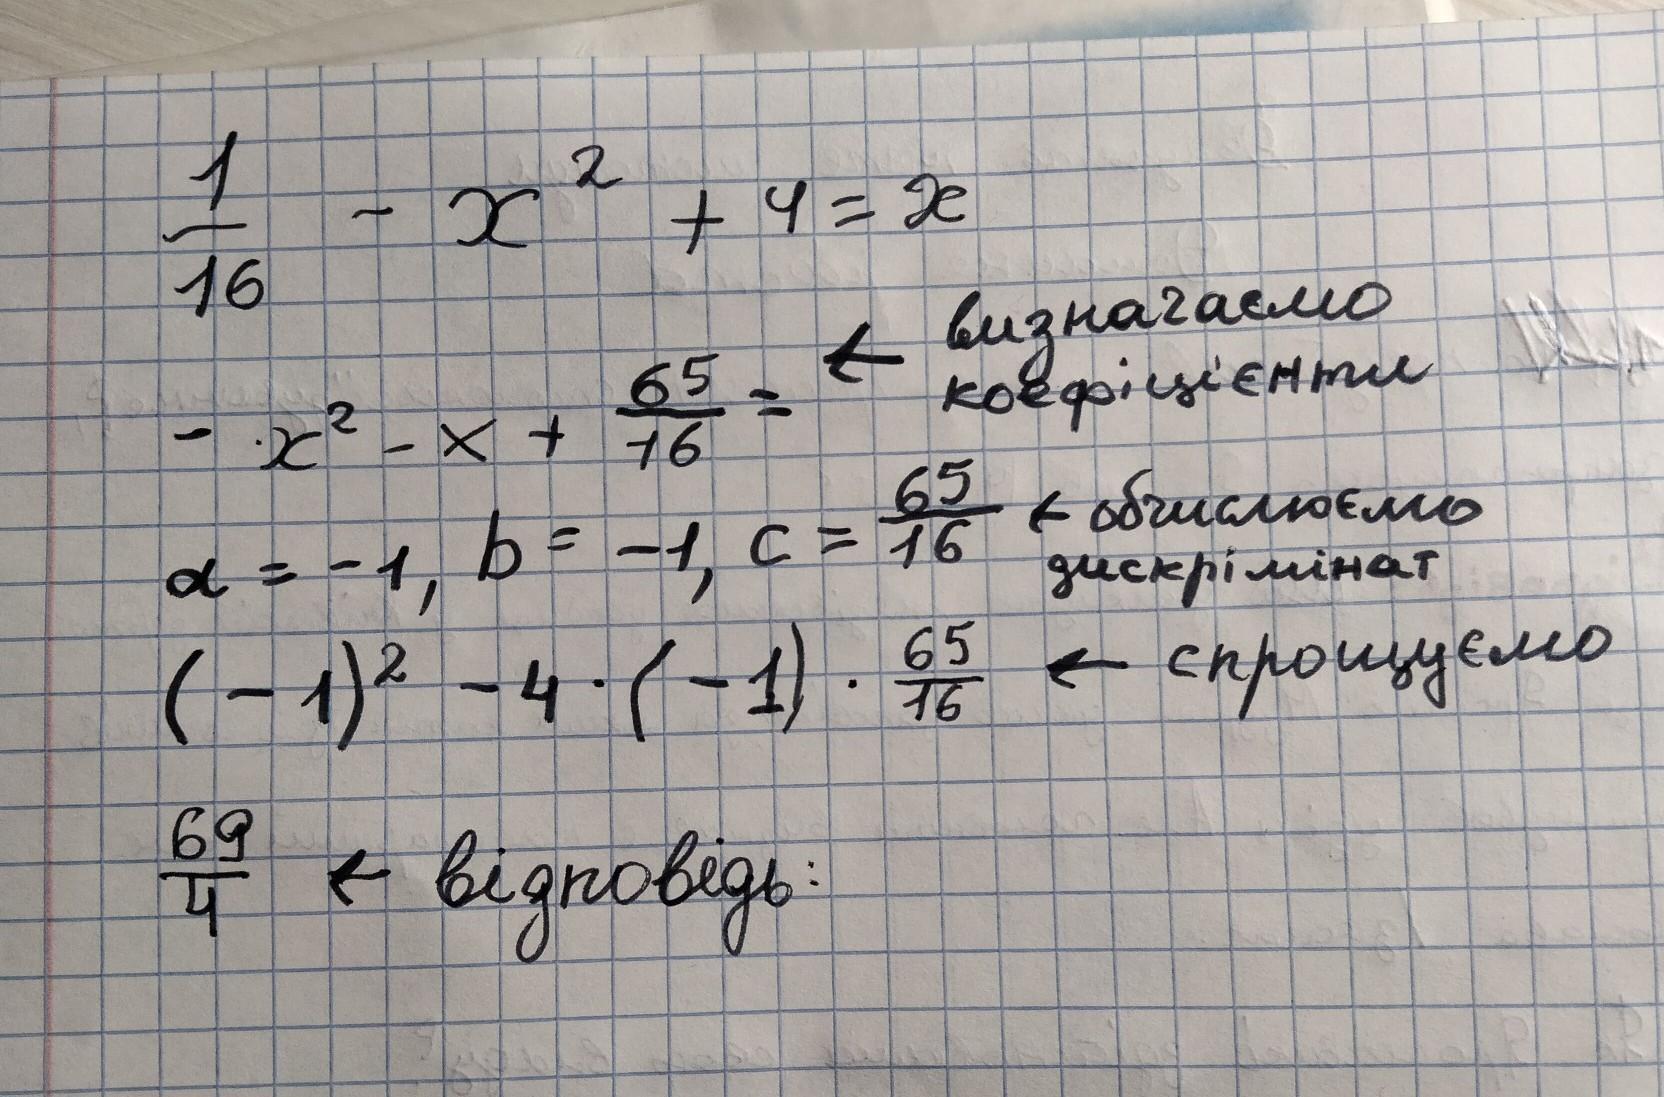 1/16 - x² + 4 = x
- x² - x + 65/16 = ← визначаємо
коефіцієнти
a = -1, b = -1, c = 65/16 ← обчислюємо
дискрімінат
(-1)² - 4 · (-1) · 65/16 ← спрощуємо
69/4 ← відповідь: